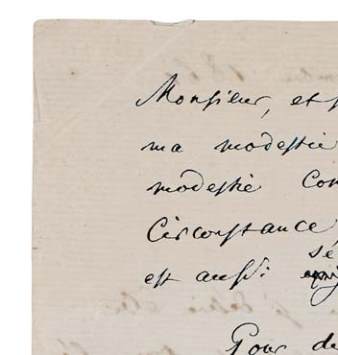 Monsieur, et
ma modestie
modestie
Circonstance
est aussi
sé
Pour